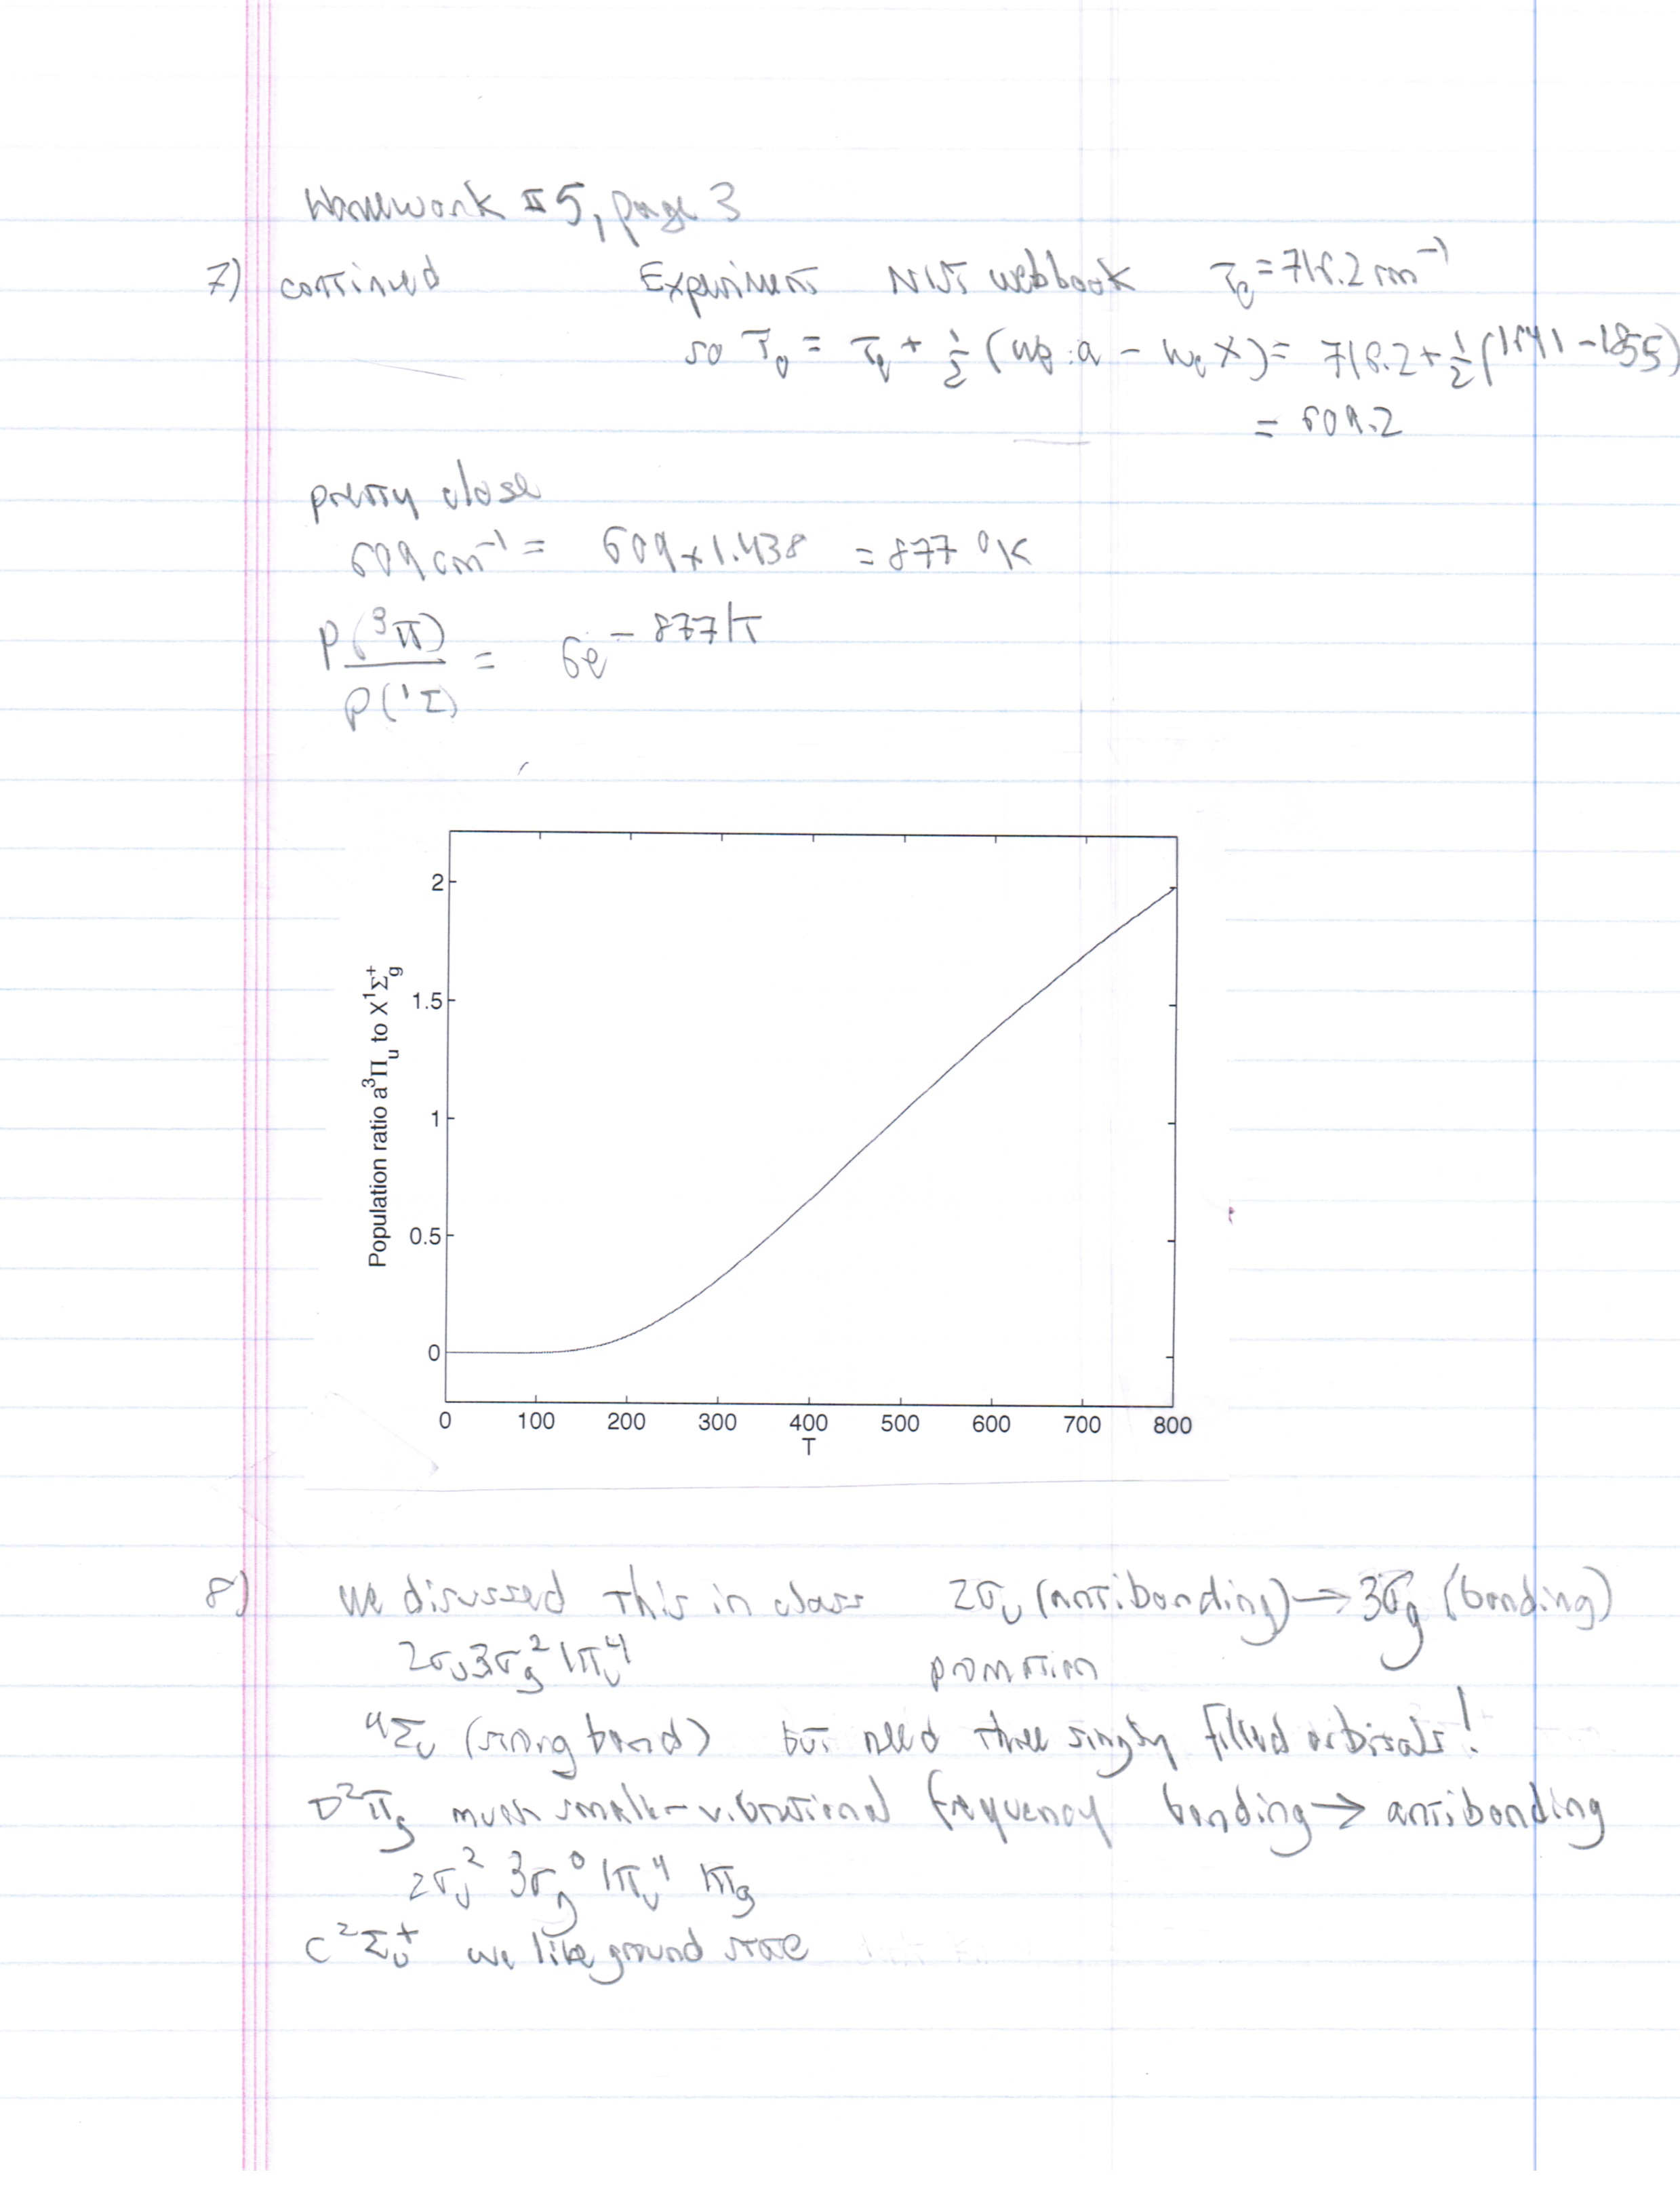 Homework #5, page 3
7) continued Experiment NIST webbook Te = 716.2 cm⁻¹
so T₀ = Te + ½ (ωe a − ωe X) = 716.2 + ½ (1641 − 1855)
= 609.2
pretty close
609 cm⁻¹ = 609 × 1.438 = 877 °K
P(³Π) / P(¹Σ) = 6e^−877/T
Population ratio a³Πu to X¹Σg⁺
2
1.5
1
0.5
0
0 100 200 300 400 500 600 700 800
T
8) we discussed this in class 2σu (antibonding) → 3σg (bonding)
2σu 3σg² 1πu⁴ promotion
⁴Σu (strong bond) but need three singly filled orbitals!
D²Πg much smaller vibrational frequency bonding → antibonding
2σu² 3σg⁰ 1πu⁴ 1πg
C²Σu⁺ ωe like ground state